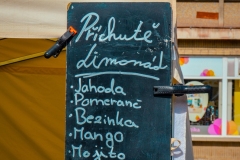 Příchutě
limonád
• Jahoda
• Pomeranč
• Bezinka
• Mango
• Mojito